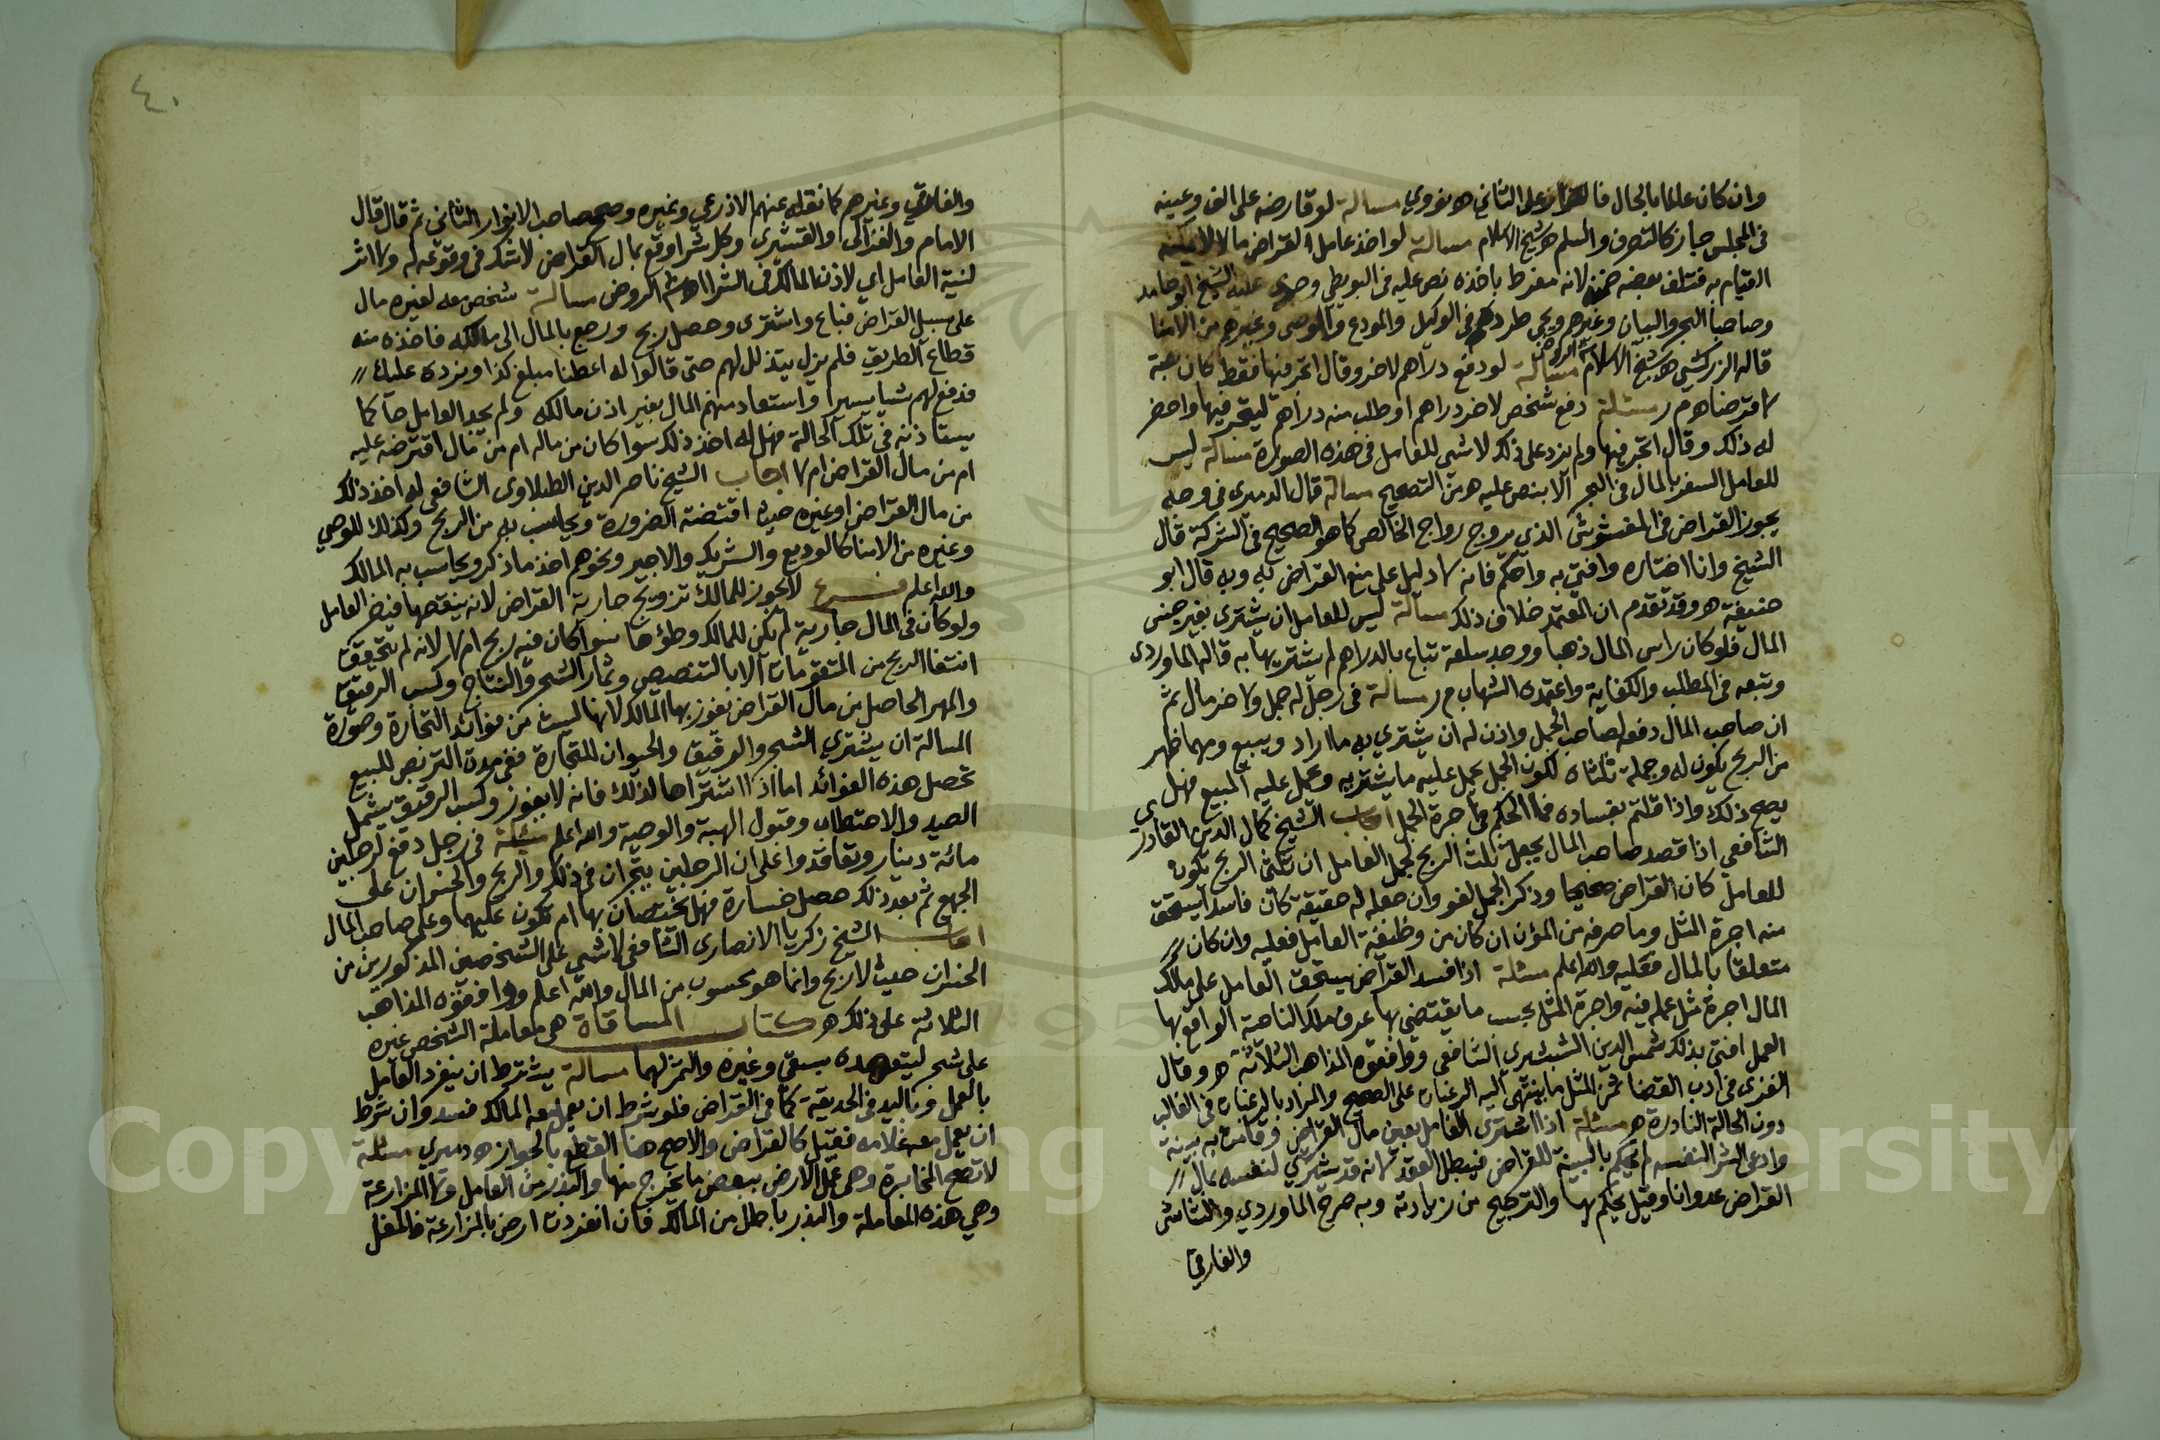 وان كان عالما بالحال فالقرار على الثاني ه نووي مسالة لو قارضه على الف وعينه
في المجلس جاز كالصرف والسلم ه شيخ الاسلام مسالة لو اخذ عامل القراض مالا لا يمكنه
القيام به فتلف بعضه ضمن لانه مفرط باخذه نص عليه في البويطي وجرى عليه الشيخ ابو حامد
وصاحبا البحر والبيان وغيرهم ويجي طرده في الوكيل والمودع والوصي وغيرهم من الامنا
قاله الزركشي ه شيخ الاسلام مسالة لو دفع دراهم لاخر وقال اتجر فيها فقط كان هبة
لا قرضا ه م ر مسئلة دفع شخص لاخر دراهم او طلب منه دراهم ليتجر فيها واحضر
له ذلك وقال اتجر فيها ولم يزد على ذلك لا شي للعامل في هذه الصورة مسالة ليس
للعامل السفر بالمال في البحر الا بنص عليه ه من التصحيح مسالة قال الدميري في وجه
يجوز القراض في المغشوش الذي يروج رواج الخالص كما هو الصحيح في الشركة قال
الشيخ وانا اختاره وافتي به واحكم فانه لا دليل على منع القراض به وبه قال ابو
حنيفة ه وقد تقدم ان المعتمد خلاف ذلك مسالة ليس للعامل ان يشتري بغير جنس
المال فلو كان راس المال ذهبا ووجد سلعة تباع بالدراهم لم يشتريها به قاله الماوردي
وتبعه في المطلب والكفاية واعتمده الشهاب م ر مسالة في رجل له جمل ولاخر مال ثم
ان صاحب المال دفعه لصاحب الجمل واذن له ان يشتري به ما اراد ويبيع ومهما ظهر
من الربح يكون له وجملة ثلثاه لكون الجمل يحمل عليه ما يشتريه وحمل عليه المبيع فهل
يصح ذلك واذا قلتم بفساده فما الحكم في اجرة الجمل اجاب الشيخ كمال الدين القادري
الشافعي اذا قصد صاحب المال بجعل ثلث الربح لجمل العامل ان ثلثي الربح تكون
للعامل كان القراض صحيحا وذكر الجمل لغو وان جعله له حقيقة كان فاسدا يستحق
منه اجرة المثل وما صرفه من المؤن ان كان من وظيفة العامل فعليه وان كان
متعلقا بالمال فعليه والله اعلم مسئلة اذا فسد القراض يستحق العامل على مالك
المال اجرة مثل عمله فيه واجرة المثل بحسب ما يقتضي بها عرف ملك الناحية الواقع بها
العمل افتى بذلك شمس الدين الششيري الشافعي ووافقوه المذاهب الثلاثة ه وقال
الغزي في ادب القضا ثمن المثل ما ينتهي اليه الرغبات على الصحيح والمراد بالرغبات في الغالب
دون الحالة النادرة ه مسئلة اذا اشترى العامل بعين مال القراض وقامت به بينة
وادعى الشرا لنفسه لم يحكم بالبينة للقراض فيبطل العقد لانه قد يشتري لنفسه بمال
القراض عدوانا وقيل يحكم بها والترجيح من زيادته وبه صرح الماوردي والشاشي
والفارقي
٤٠
والفارقي وغيرهم كما نقله عنهم الاذرعي وغيره وصحح صاحب الانوار الثاني ثم قال قال
الامام والغزالي والقشيري وكل شرا وقع بمال القراض لا شك في وقوعه له ولا اثر
لنية العامل اي لاذن المالك في الشرا الروض مسالة شخص معه لغيره مال
على سبيل القراض فباع واشترى وحصل ربح ورجع بالمال الى مالكه فاخذه منه
قطاع الطريق فلم يزل يتذلل لهم حتى قالوا له اعطنا مبلغ كذا ونرده عليك
فدفع لهم شيا يسيرا واستعاد منهم المال بغير اذن مالكه ولم يجد العامل حاكما
يستاذنه في تلك الحالة فهل له اخذ ذلك سوا كان من ماله ام من مال اقترضه عليه
ام من مال القراض ام لا اجاب الشيخ ناصر الدين الطبلاوي الشافعي له اخذ ذلك
من مال القراض او غيره حيث اقتضته الضرورة ويحاسب به من الربح وكذلك للوصي
وغيره من الامنا كالوديع والشريك والاجير ونحوهم اخذ ما ذكر ويحاسب به المالك
والله اعلم فرع لا يجوز للمالك تزويج جارية القراض لانه ينقصها فيضر العامل
ولو كان في المال جارية لم يكن للمالك وطؤها سوا كان فيه ربح ام لا لانه لم يتحقق
انتفا الربح من المتقومات الا بالتنضيض وثمار الشجر والنتاج وكسب الرقيق
والمهر الحاصل من مال القراض يفوز بها المالك لانها ليست من فوائد التجارة وصورة
المسالة ان يشتري الشجر والرقيق والحيوان للتجارة ففي مدة التربص للبيع
تحصل هذه الفوائد اما اذا اشتراها لذلك فانه لا يفوز وكسب الرقيق يشمل
الصيد والاحتطاب وقبول الهبة والوصية والله اعلم مسئلة في رجل دفع لرجلين
مائة دينار وتعاقدوا على ان الرجلين يتجران في ذلك والربح والخسران على
الجميع ثم بعد ذلك حصل خسارة فهل يختصان بها ام تكون عليهما وعلى صاحب المال
اجاب الشيخ زكريا الانصاري الشافعي لا شي على الشخصين المذكورين من
الخسران حيث لا ربح وانما هو محسوب من المال والله اعلم ووافقوه المذاهب
الثلاثة على ذلك ه كتاب المساقاة هي معاملة الشخص غيره
على شجر ليتعهده بسقي وغيره والثمر لهما مسالة يشترط ان ينفرد العامل
بالعمل وباليد في الحديقة كما في القراض فلو شرط ان يعمل معه المالك فسد وان شرط
ان يعمل معه غلامه فقيل كالقراض والاصح هنا القطع بالجواز ه دميري مسئلة
لا تصح المخابرة وهي عمل الارض ببعض ما يخرج منها والبذر من العامل ولا المزارعة
وهي هذه المعاملة والبذر باطل من المالك فان انفردت ارض بالمزارعة فالمغل